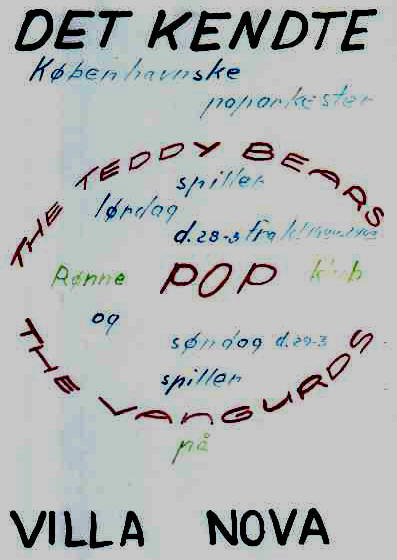 DET KENDTE
Københavnske
poporkester
THE TEDDY BEARS
spiller
lørdag
d.28-3 fra kl
Rønne POP klub
og
søndag d.29-3
spiller
THE VANGUARDS
på
VILLA NOVA